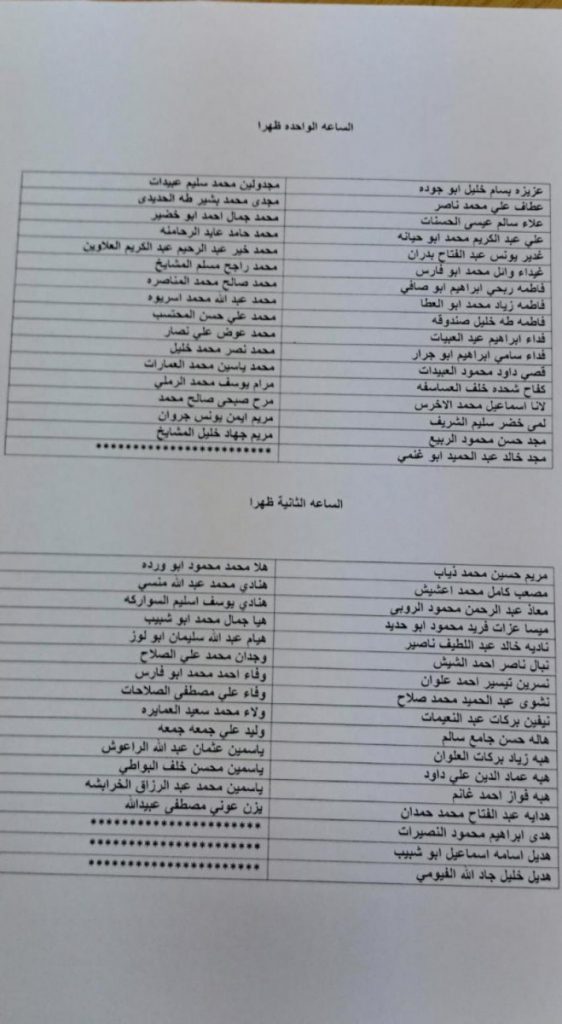 الساعه الواحده ظهرا
عزيزه بسام خليل ابو جوده	مجدولين محمد سليم عبيدات
عطاف علي محمد ناصر	مجدى محمد بشير طه الحديدى
علاء سالم عيسى الحسنات	محمد جمال احمد ابو خضير
علي عبد الكريم محمد ابو حيانه	محمد حامد عايد الرحامنه
غدير يونس عبد الفتاح بدران	محمد خير عبد الرحيم عبد الكريم العلاوين
غيداء وائل محمد ابو فارس	محمد راجح مسلم المشايخ
فاطمه ربحي ابراهيم ابو صافي	محمد صالح محمد المناصره
فاطمه زياد محمد ابو العطا	محمد عبد الله محمد اسريوه
فاطمه طه خليل صندوقه	محمد علي حسن المحتسب
فداء ابراهيم عيد العبيات	محمد عوض علي نصار
فداء سامي ابراهيم ابو جرار	محمد نصر محمد خليل
قصي داود محمود العبيدات	محمد ياسين محمد العمارات
كفاح شحده خلف العساسفه	مرام يوسف محمد الرملي
لانا اسماعيل محمد الاخرس	مرح صبحى صالح محمد
لمى خضر سليم الشريف	مريم ايمن يونس جروان
مجد حسن محمود الربيع	مريم جهاد خليل المشايخ
مجد خالد عبد الحميد ابو غنمي	***********************
الساعه الثانية ظهرا
مريم حسين محمد ذياب	هلا محمد محمود ابو ورده
مصعب كامل محمد اعشيش	هنادي محمد عبد الله منسي
معاذ عبد الرحمن محمود الروبي	هنادي يوسف اسليم السواركه
ميسا عزات فريد محمود ابو حديد	هيا جمال محمد ابو شبيب
ناديه خالد عبد اللطيف ناصير	هيام عبد الله سليمان ابو لوز
نبال ناصر احمد الشيش	وجدان محمد علي الصلاح
نسرين تيسير احمد علوان	وفاء احمد محمد ابو فارس
نشوى عبد الحميد محمد صلاح	وفاء علي مصطفى الصلاحات
نيفين بركات عبد النعيمات	ولاء محمد سعيد العمايره
هاله حسن جامع سالم	وليد علي جمعه جمعه
هبه زياد بركات العلوان	ياسمين عثمان عبد الله الراعوش
هبه عماد الدين علي داود	ياسمين محسن خلف البواطي
هبه فواز احمد غانم	ياسمين محمد عبد الرزاق الخرابشه
هدايه عبد الفتاح محمد حمدان	يزن عوني مصطفى عبيدالله
هدى ابراهيم محمود النصيرات	***********************
هديل اسامه اسماعيل ابو شبيب	***********************
هديل خليل جاد الله الفيومي	***********************